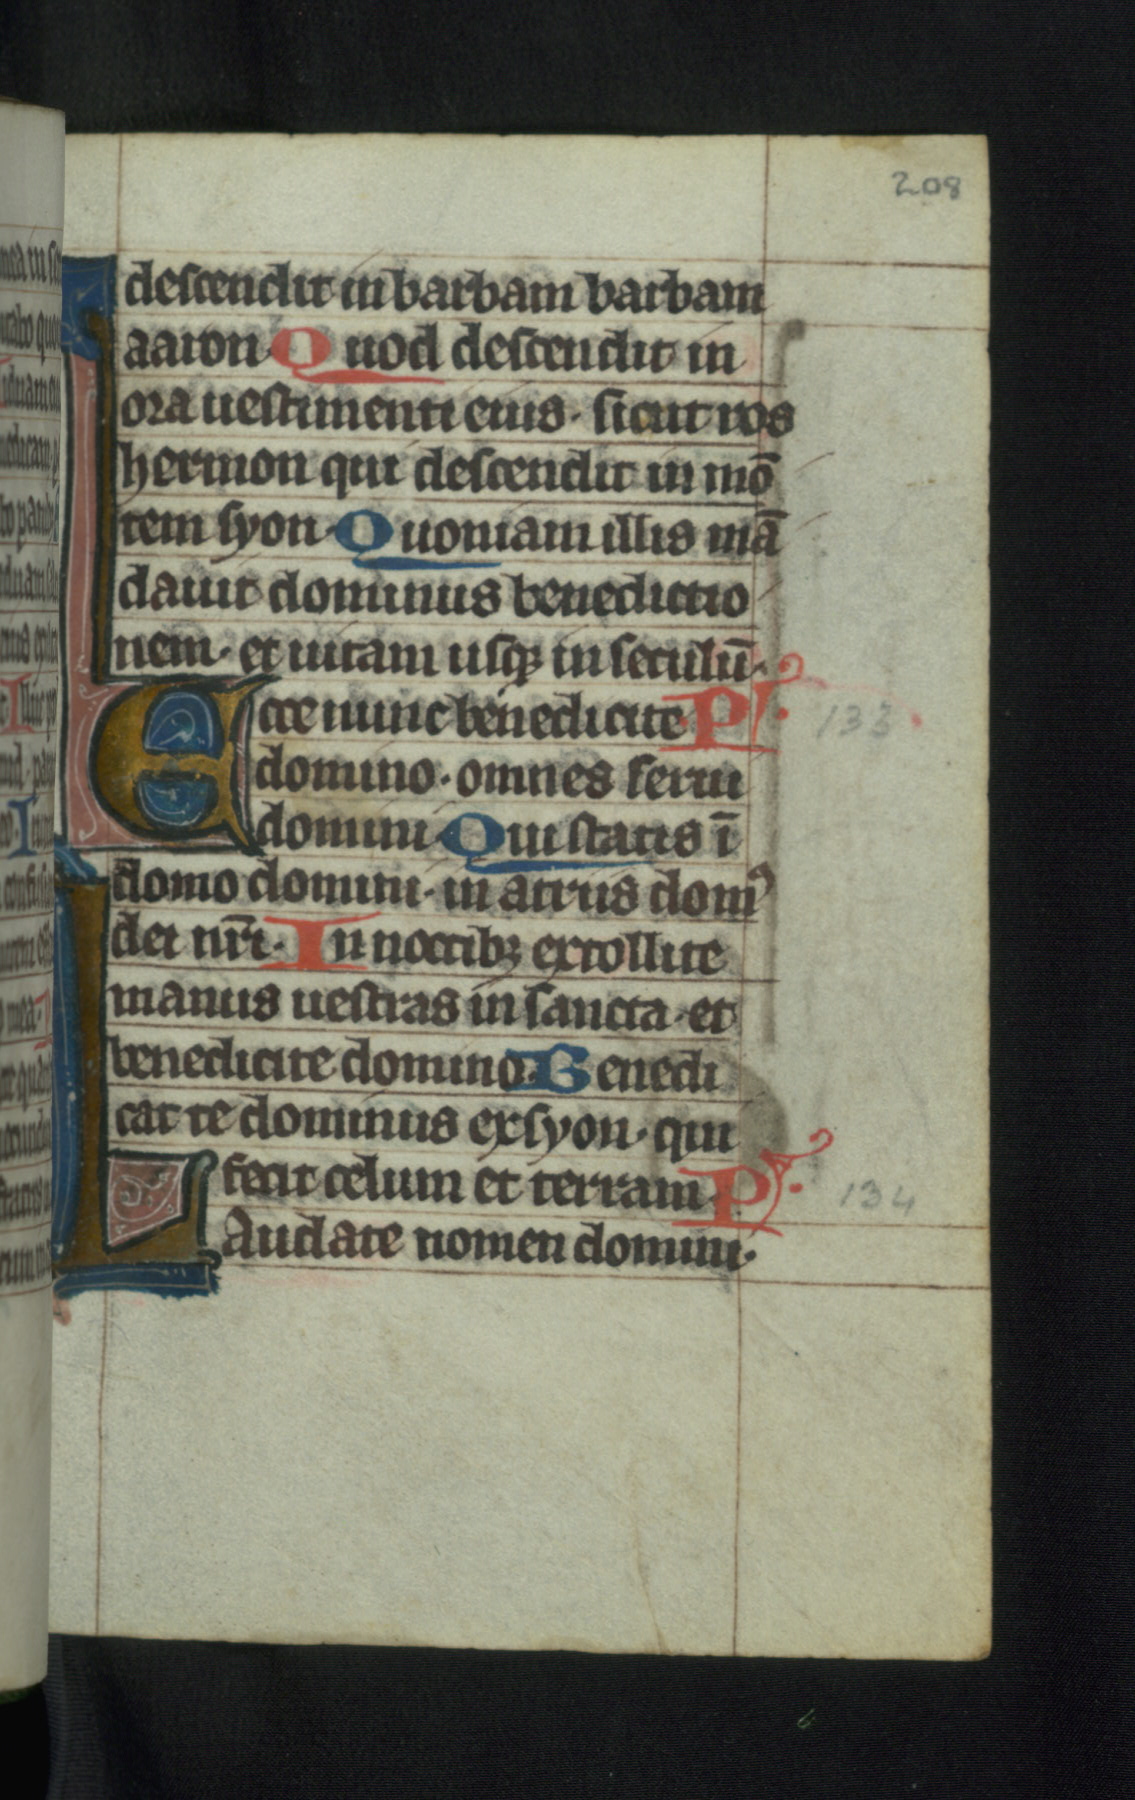 208
descendit in barbam barbam
aaron Quod descendit in
ora uestimenti eius · sicut ros
hermon qui descendit in mō
tem syon · Quoniam illis mā
dauit dominus benedictio
nem · et uitam usqꝫ in seculū ·
Ecce nunc benedicite P̓s · 133
domino · omnes serui
domini · Qui statis ī
domo domini · in atriis domꝰ
dei nr̄i · In noctibꝫ extollite
manus uestras in sancta · et
benedicite domino · Benedi
cat te dominus ex syon · qui
fecit celum et terram · P̓s · 134
Laudate nomen domini ·